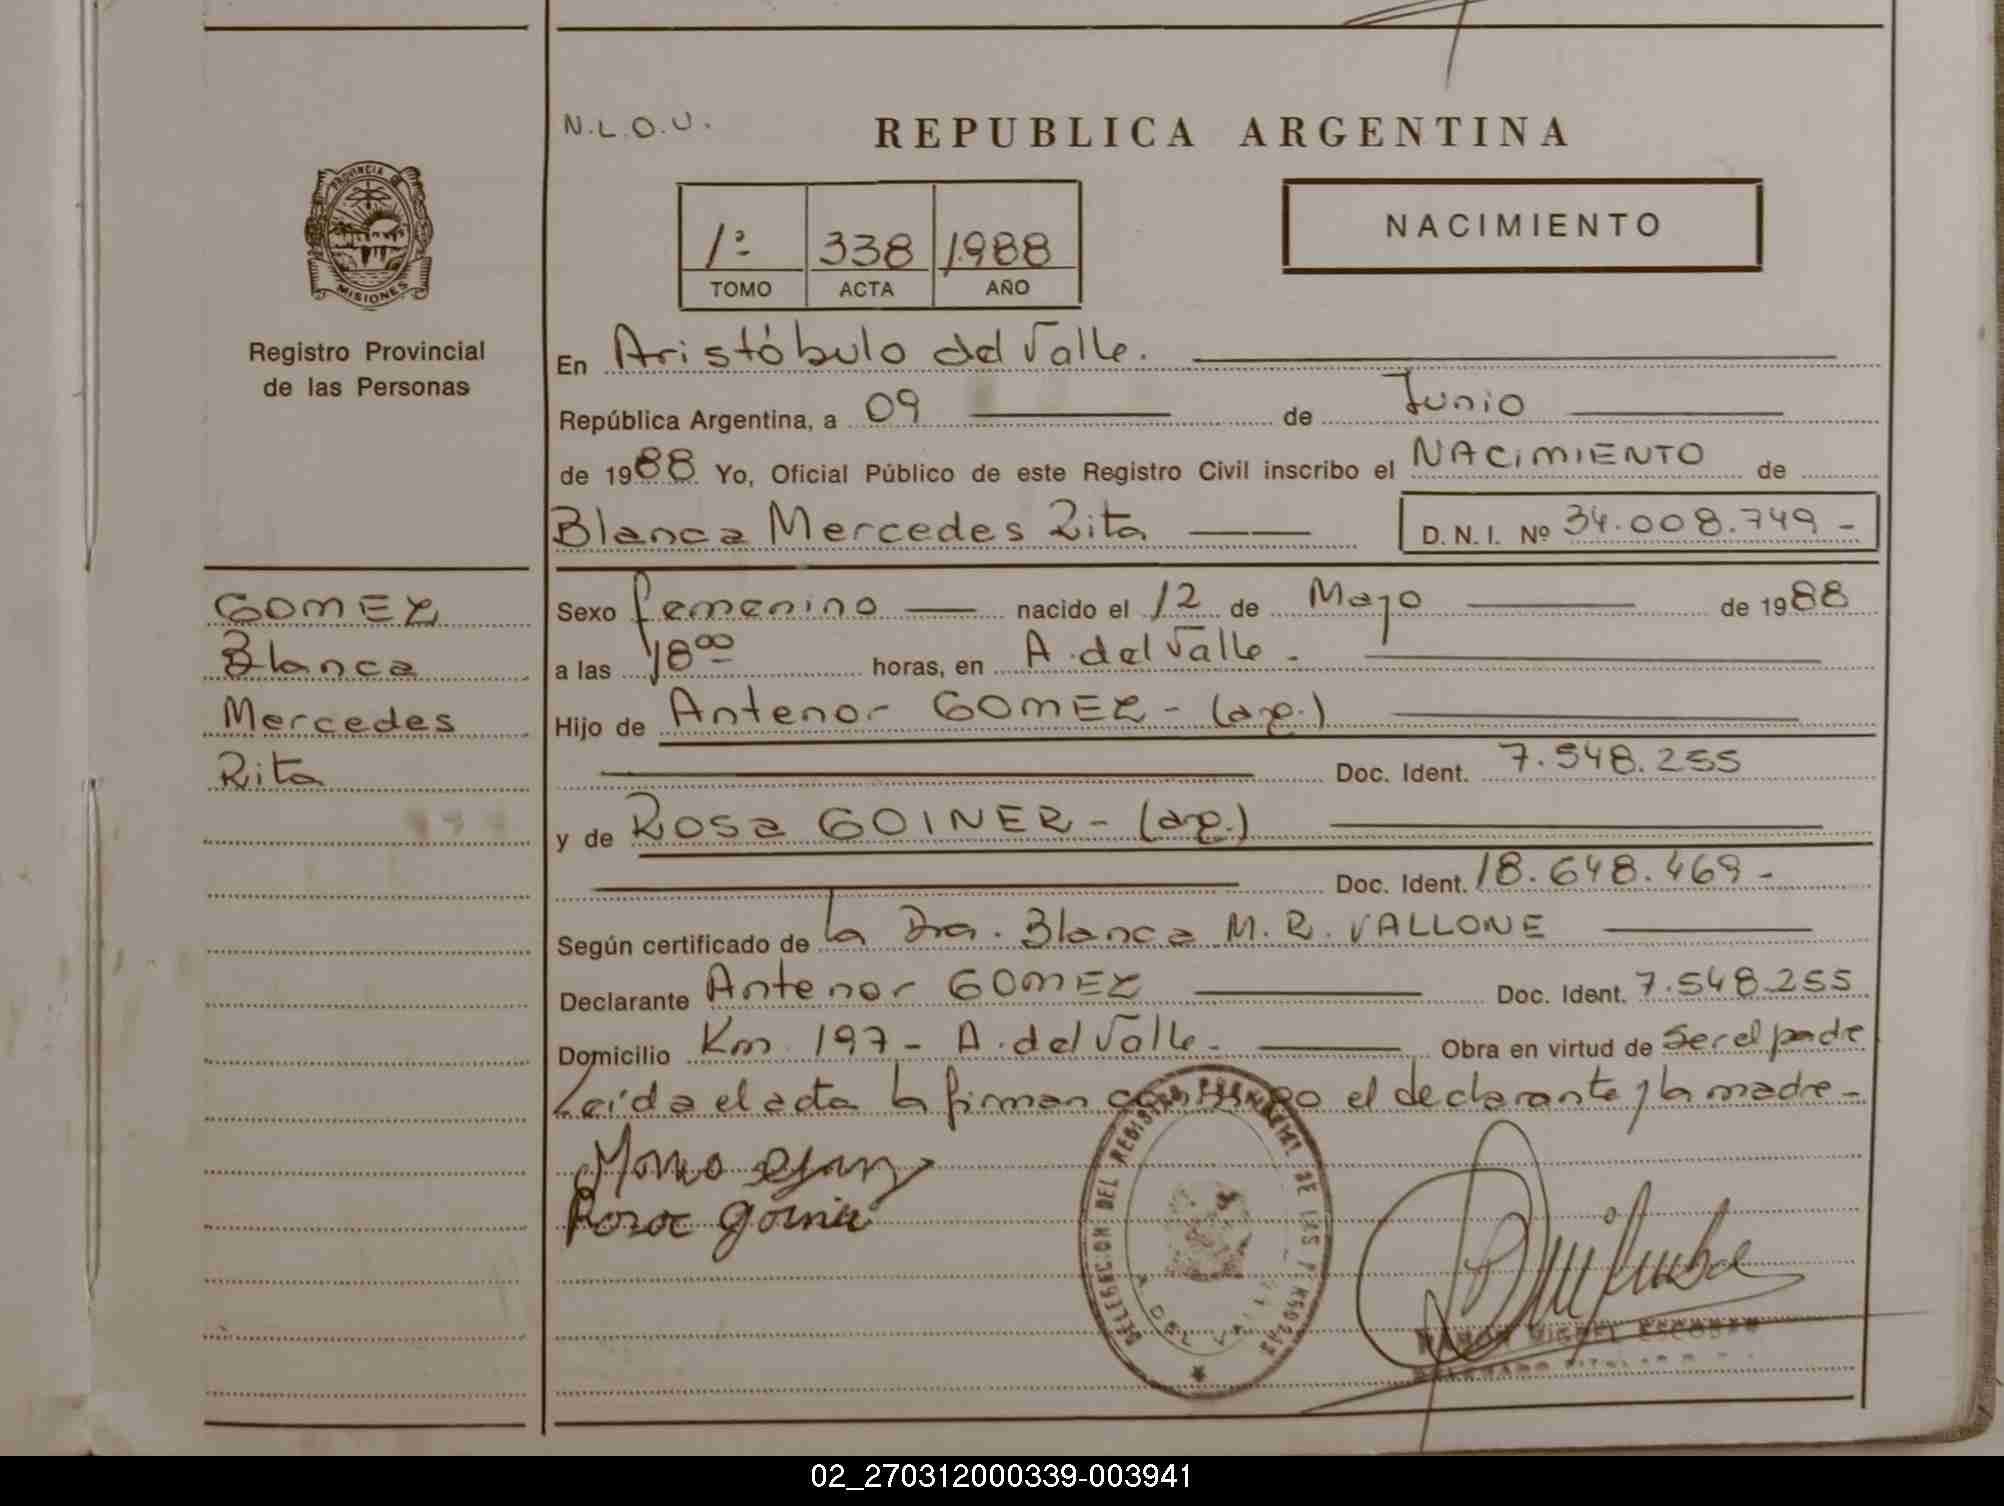 N.L.O.U.
REPUBLICA ARGENTINA
PROVINCIA DE
MISIONES
Registro Provincial
de las Personas
NACIMIENTO
1º 338 1988
TOMO ACTA AÑO
En Aristóbulo del Valle.
República Argentina, a 09 de Junio
de 1988 Yo, Oficial Público de este Registro Civil inscribo el NACIMIENTO de
Blanca Mercedes Rita D.N.I. Nº 34.008.749-
GOMEZ
Blanca
Mercedes
Rita
Sexo femenino nacido el 12 de Mayo de 1988
a las 18 00 horas, en A. del Valle.
Hijo de Antenor GOMEZ - (arg.)
Doc. Ident. 7.548.255
y de Rosa GOINER - (arg.)
Doc. Ident. 18.648.469-
Según certificado de la Dra. Blanca M. R. VALLONE
Declarante Antenor GOMEZ Doc. Ident. 7.548.255
Domicilio Km 197 - A. del Valle - Obra en virtud de ser el padre
Leída el acta la firman conmigo el declarante y la madre -
DELEGACION DEL REGISTRO PROVINCIAL DE LAS PERSONAS
A. DEL VALLE
RAMON MIGUEL ESCOBAR
02_270312000339-003941